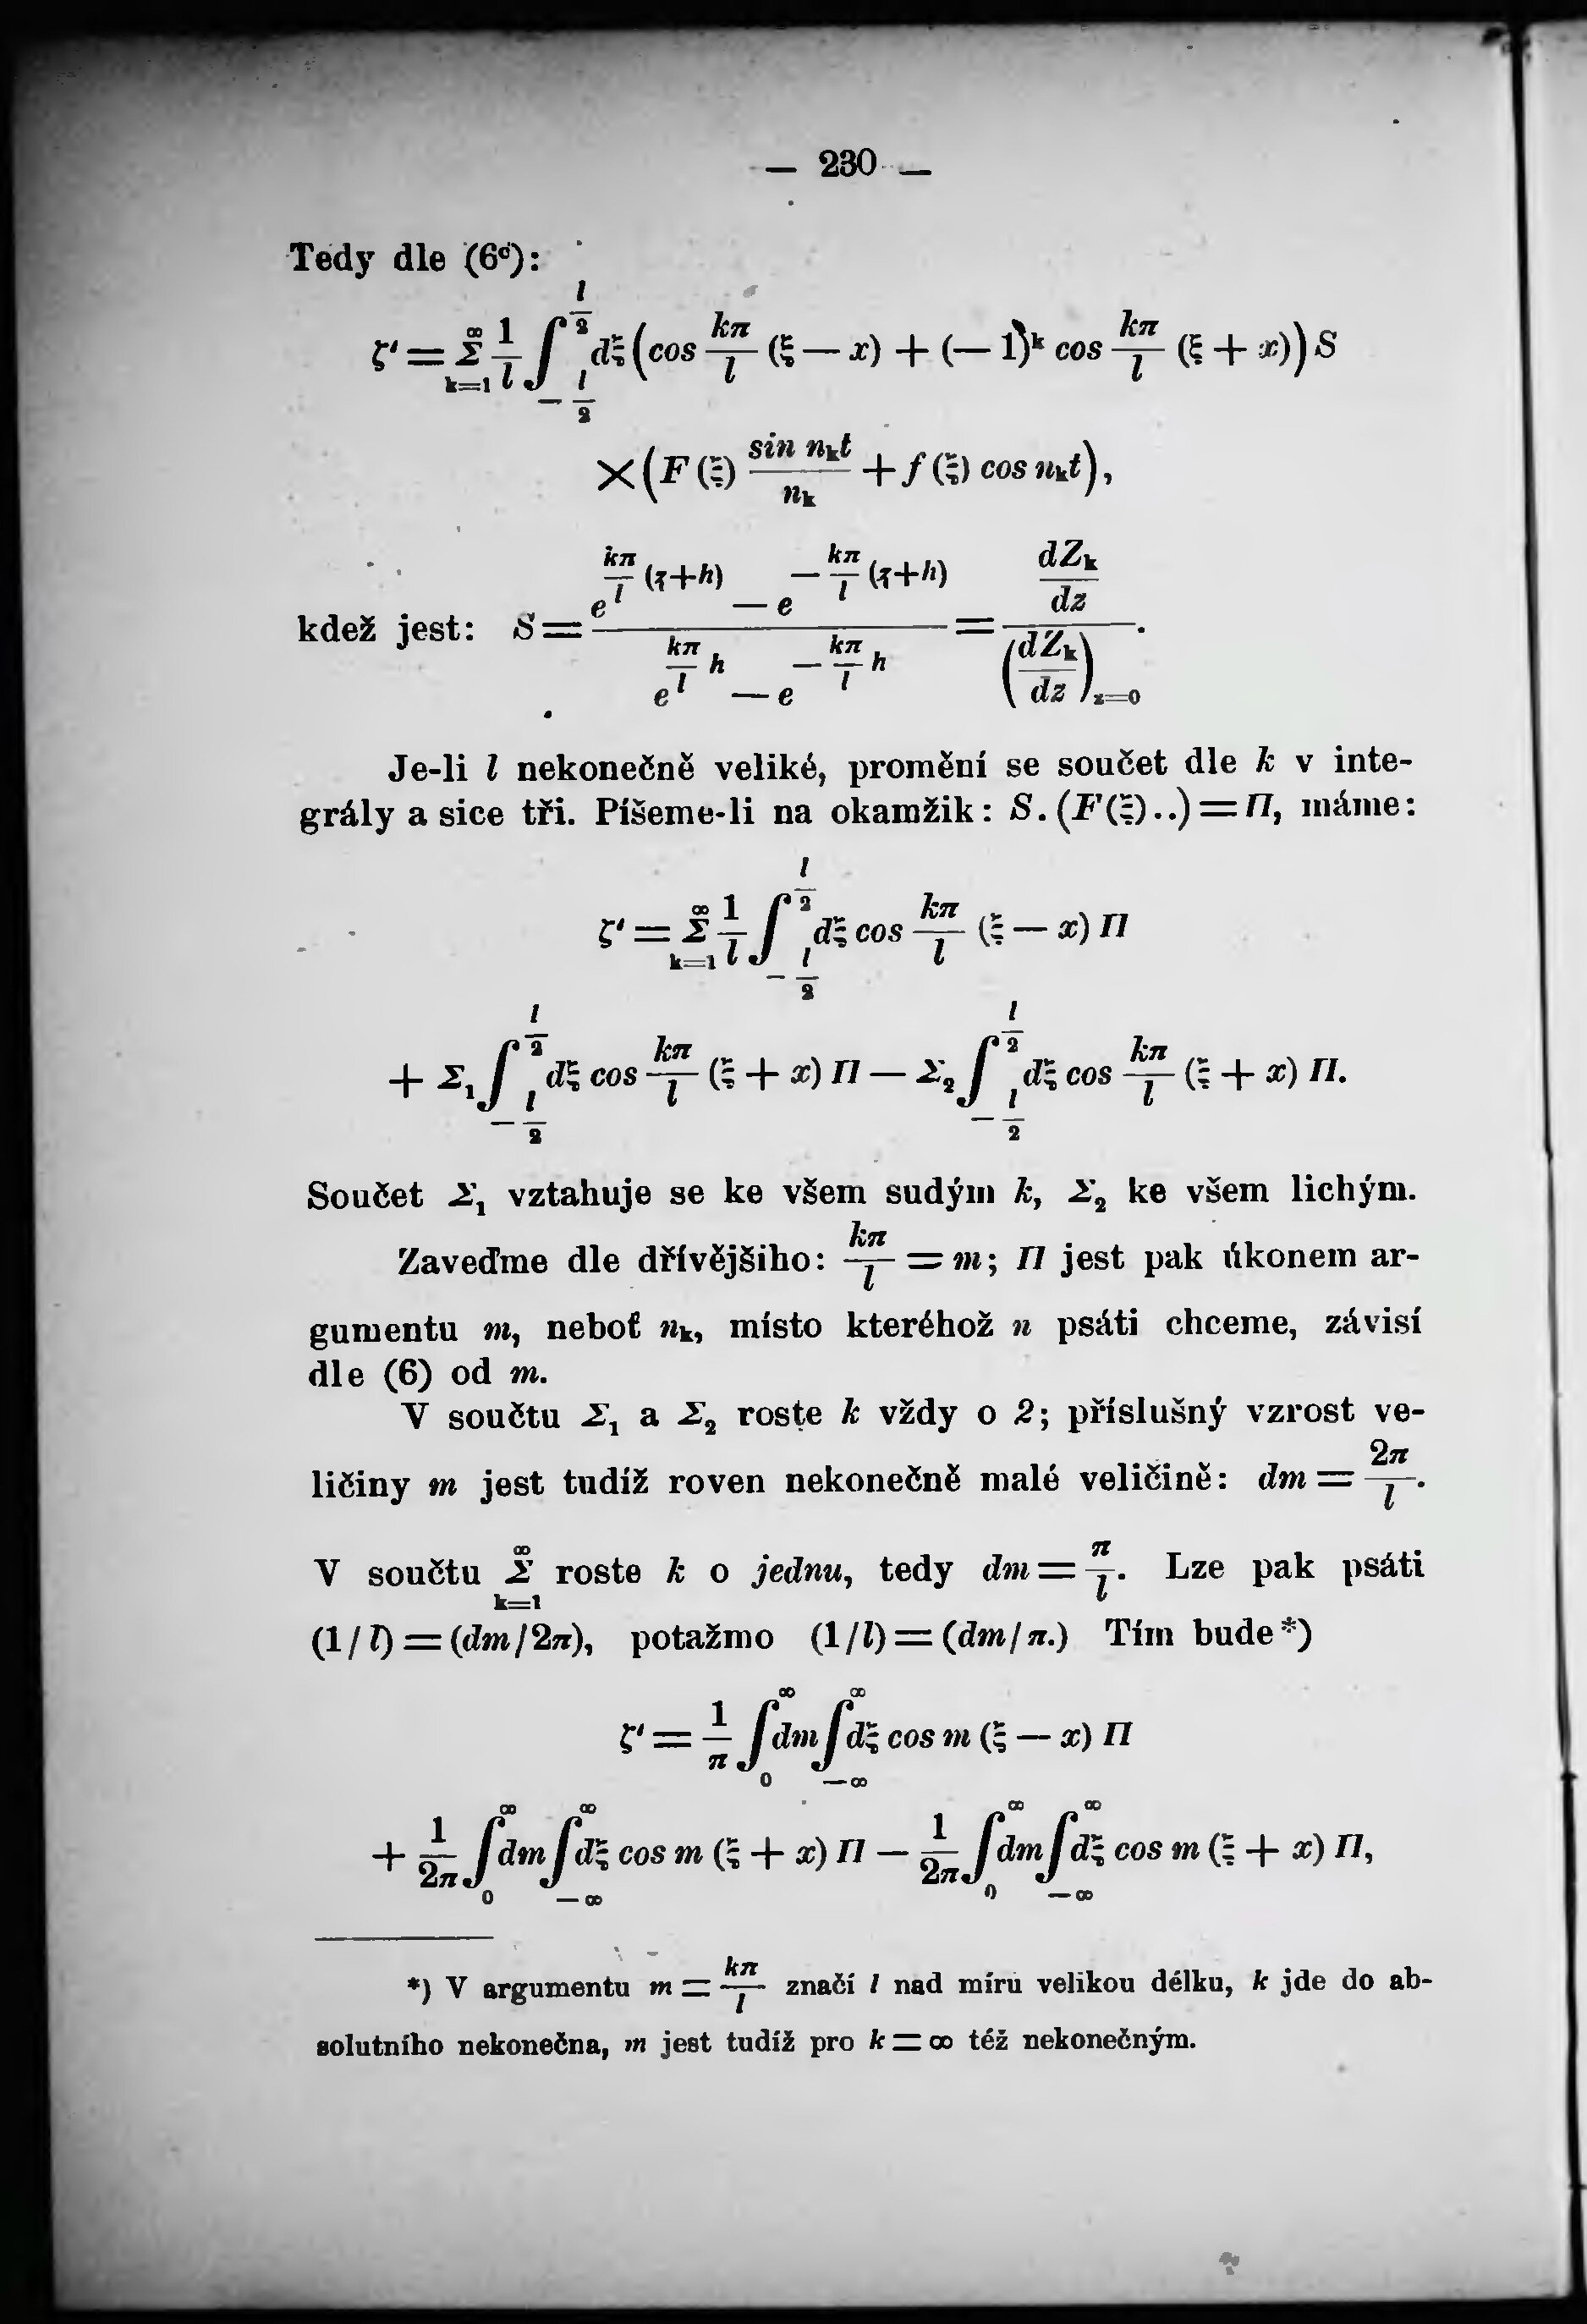 — 230 —
Tedy dle (6ᶜ):
ζ' = Σ_{k=1}^{∞} \frac{1}{l} ∫_{-\frac{l}{2}}^{\frac{l}{2}} dξ (cos \frac{kπ}{l} (ξ — x) + (— 1)^k cos \frac{kπ}{l} (ξ + x)) S
× (F(ξ) \frac{sin n_k t}{n_k} + f(ξ) cos n_k t),
kdež jest: S = \frac{e^{\frac{kπ}{l}(z+h)} — e^{-\frac{kπ}{l}(z+h)}}{e^{\frac{kπ}{l}h} — e^{-\frac{kπ}{l}h}} = \frac{\frac{dZ_k}{dz}}{(\frac{dZ_k}{dz})_{z=0}}.
Je-li l nekonečně veliké, promění se součet dle k v inte-
grály a sice tři. Píšeme-li na okamžik: S.(F(ξ)..) = Π, máme:
ζ' = Σ_{k=1}^{∞} \frac{1}{l} ∫_{-\frac{l}{2}}^{\frac{l}{2}} dξ cos \frac{kπ}{l} (ξ — x) Π
+ Σ₁ ∫_{-\frac{l}{2}}^{\frac{l}{2}} dξ cos \frac{kπ}{l} (ξ + x) Π — Σ₂ ∫_{-\frac{l}{2}}^{\frac{l}{2}} dξ cos \frac{kπ}{l} (ξ + x) Π.
Součet Σ₁ vztahuje se ke všem sudým k, Σ₂ ke všem lichým.
Zaveďme dle dřívějšiho: \frac{kπ}{l} = m; Π jest pak úkonem ar-
gumentu m, neboť n_k, místo kteréhož n psáti chceme, závisí
dle (6) od m.
V součtu Σ₁ a Σ₂ roste k vždy o 2; příslušný vzrost ve-
ličiny m jest tudíž roven nekonečně malé veličině: dm = \frac{2π}{l}.
V součtu Σ_{k=1}^{∞} roste k o jednu, tedy dm = \frac{π}{l}. Lze pak psáti
(1/l) = (dm/2π), potažmo (1/l) = (dm/π.) Tím bude*)
ζ' = \frac{1}{π} ∫_{0}^{∞} dm ∫_{—∞}^{∞} dξ cos m (ξ — x) Π
+ \frac{1}{2π} ∫_{0}^{∞} dm ∫_{—∞}^{∞} dξ cos m (ξ + x) Π — \frac{1}{2π} ∫_{0}^{∞} dm ∫_{—∞}^{∞} dξ cos m (ξ + x) Π,
*) V argumentu m = \frac{kπ}{l} značí l nad míru velikou délku, k jde do ab-
solutního nekonečna, m jest tudíž pro k = ∞ též nekonečným.